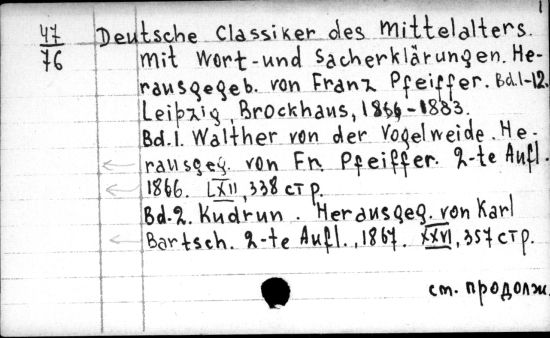 1
47
76
Deutsche Classiker des Mittelalters.
mit Wort- und Sacherklärungen. He-
rausgegeb. von Franz Pfeiffer. Bd.1-12.
Leipzig, Brockhaus, 1866-1883.
Bd.1. Walther von der Vogelweide. He-
rausgeg. von Fr. Pfeiffer. 2-te Aufl.
1866. LXII, 338 стр.
Bd.2. Kudrun. Herausgeg. von Karl
Bartsch. 2-te Aufl., 1867. XXVI, 357 стр.
см. продолж.